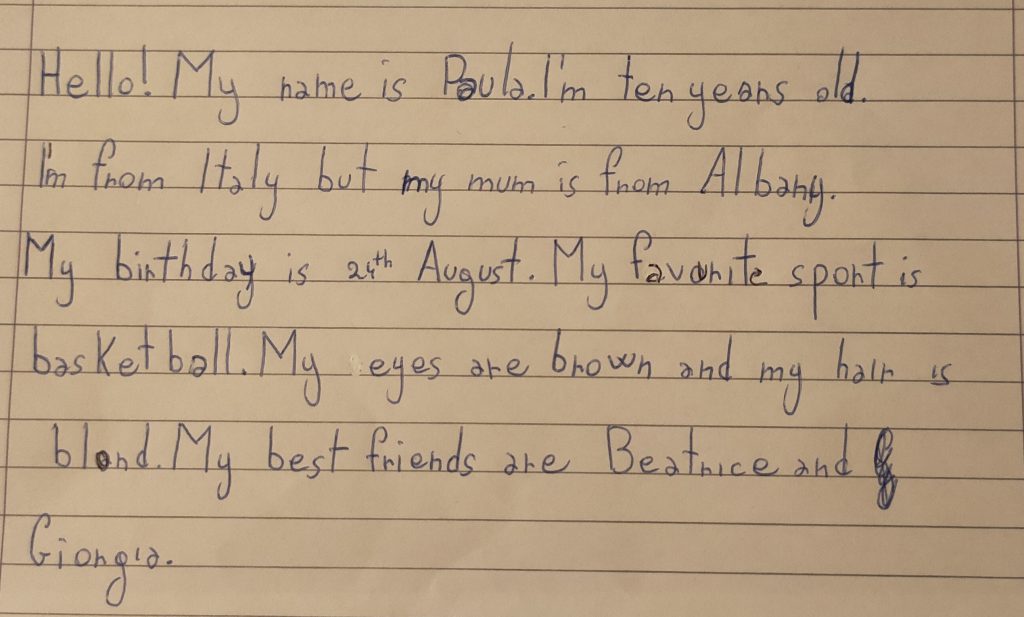 Hello! My name is Paula. I'm ten years old.
I'm from Italy but my mum is from Albany.
My birthday is 24th August. My favorite sport is
basketball. My eyes are brown and my hair is
blond. My best friends are Beatrice and
Giorgia.